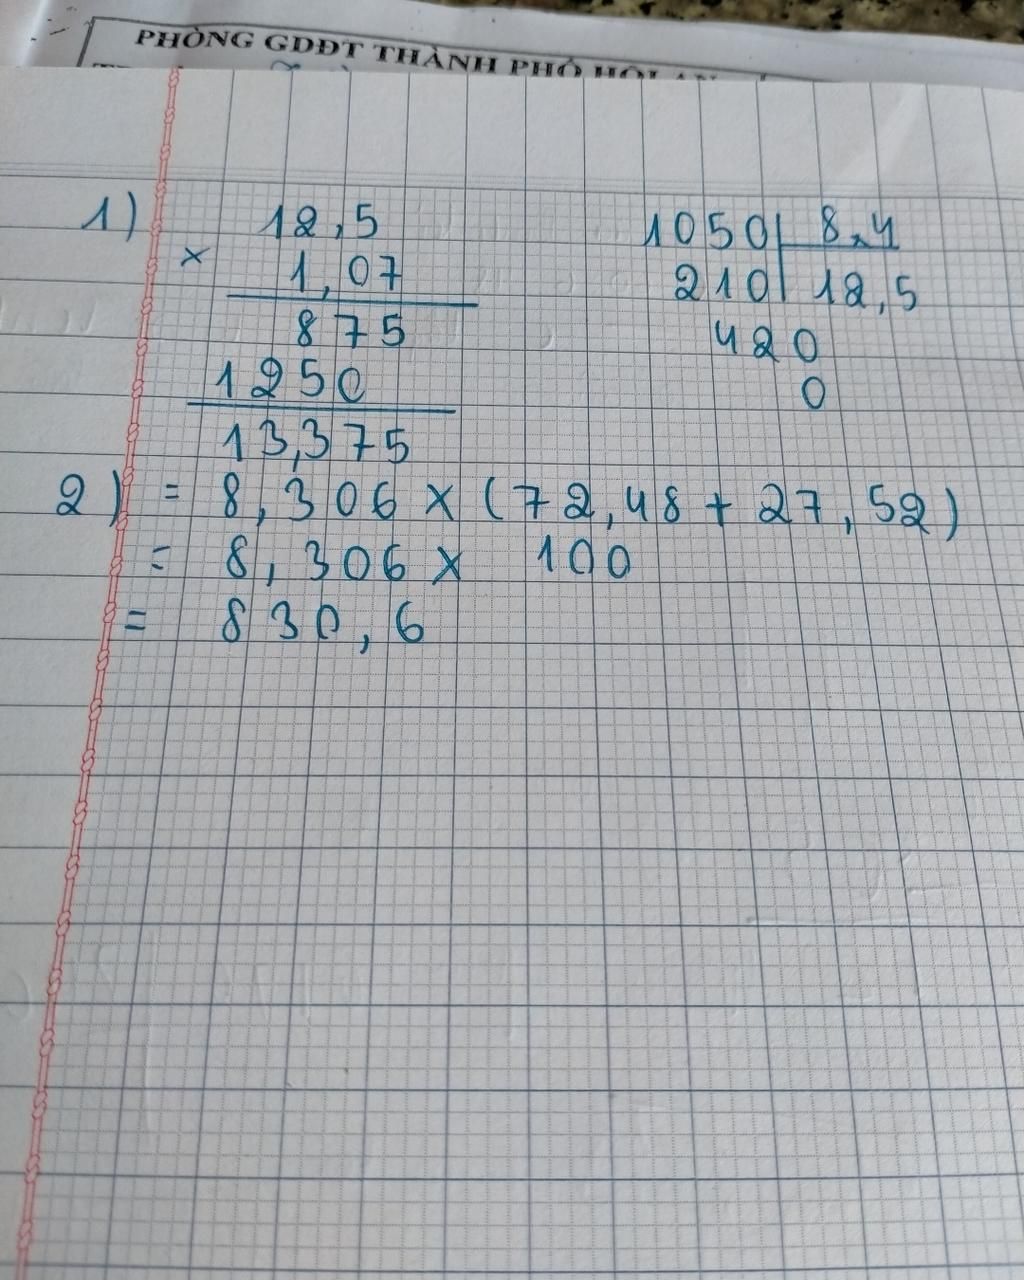 PHÒNG GDĐT THÀNH PHỐ HỘI AN
1) 12,5
× 1,07
875
1250
13,375
1050 8,4
210 12,5
420
0
2) = 8,306 × (72,48 + 27,52)
= 8,306 × 100
= 830,6